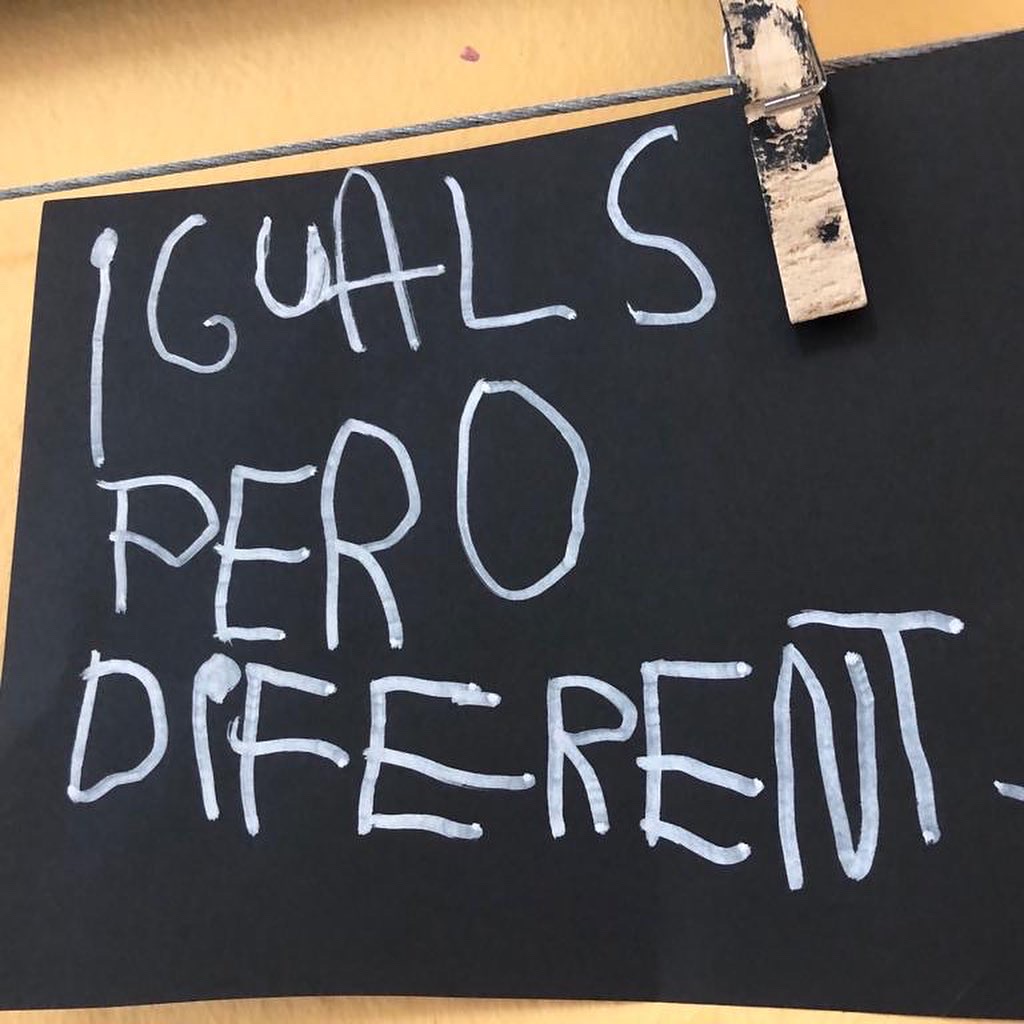 IGUALS
PERO
DIFERENT